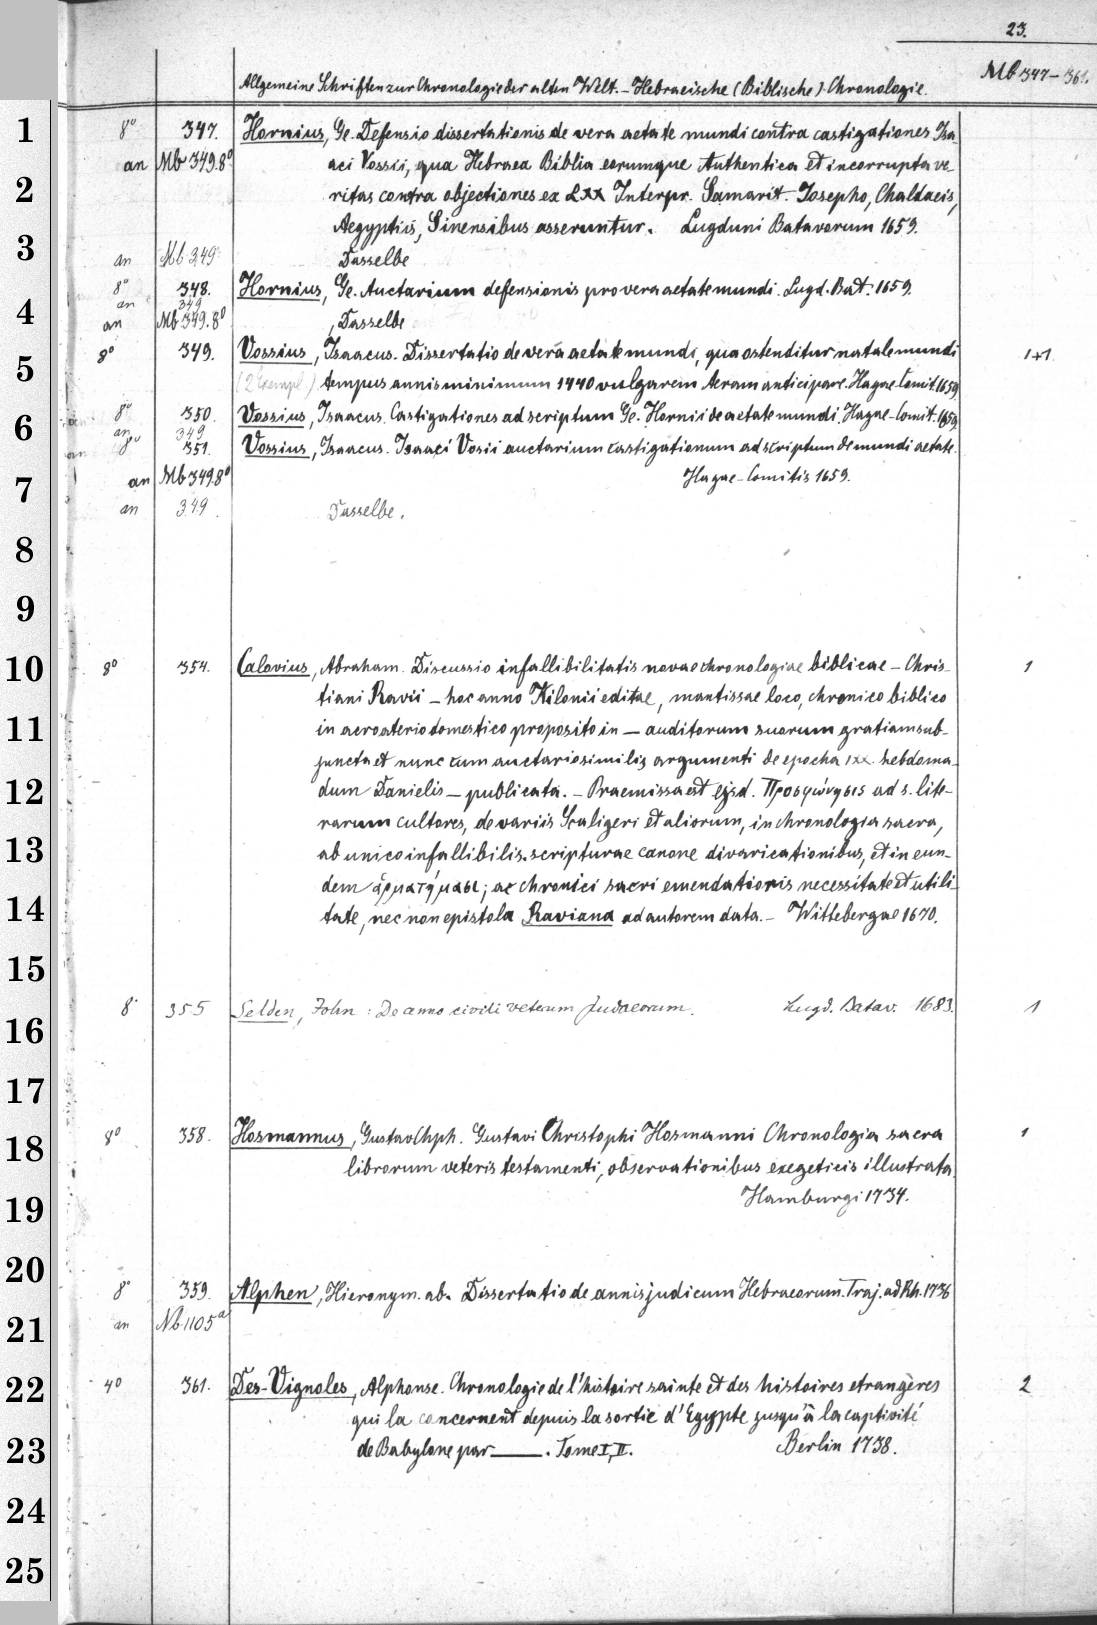 23.
Mb 347–361.
Allgemeine Schriften zur Chronologie der alten Welt. – Hebraeische (Biblische) Chronologie.
1 8° 347. Hornius, Ge. Defensio dissertationis de vera aetate mundi contra castigationes Isa-
an Mb 349.8° aci Vossii, qua Hebraea Biblia eorumque Authentica et incorrupta ve-
2 ritas contra objectiones ex LXX Interpr. Samarit. Josepho, Chaldaeis,
Aegyptiis, Sinensibus asseruntur. Lugduni Batavorum 1659.
3 an Mb 349 Dasselbe
8° 348. Hornius, Ge. Auctarium defensionis pro vera aetate mundi. Lugd. Bat. 1659.
an 349
4 an Mb 349.8° , Dasselbe
8° 349. Vossius, Isaacus. Dissertatio de vera aetate mundi, qua ostenditur natale mundi 1+1
5 (2 Exempl.) tempus annis minimum 1440 vulgarem Aeram anticipare. Hagae-Comit. 1659
8° 350. Vossius, Isaacus. Castigationes ad scriptum Ge. Hornii de aetate mundi. Hagae-Comit. 1659
6 an 349
8° 351. Vossius, Isaacus. Isaaci Vosii auctarium castigationum ad scriptum de mundi aetate.
7 an Mb 349.8° Hagae-Comitis 1659.
an 349. Dasselbe.
8
9
10 8° 354. Calovius, Abraham. Discussio infallibilitatis novae chronologiae biblicae – Chris-
tiani Ravii – hoc anno Kilonii editae, mantissae loco, chronico biblico
11 in acroaterio domestico proposito in — auditorum suorum gratiam sub-
juncta et nunc cum auctario similis argumenti de epocha lxx. hebdoma-
12 dum Danielis – publicata. – Praemissa est ejsd. Προσφώνησις ad s. lite-
rarum cultores, de variis Scaligeri et aliorum, in chronologia sacra,
13 ab unico infallibilis scripturae canone divaricationibus, et in eun-
dem ἁρματήμασι; ac chronici sacri emendationis necessitate et utili-
14 tate, nec non epistola Raviana ad autorem data. – Wittebergae 1670.
1
15
8° 355 Selden, John: De anno civili veterum Judaeorum. Lugd. Batav. 1683. 1
16
17
18 8° 358. Hosmannus, Gustav Chph. Gustavi Christophi Hosmanni Chronologia sacra 1
librorum veteris testamenti, observationibus exegeticis illustrata.
19 Hamburgi 1734.
20
8° 359. Alphen, Hieronym. ab. Dissertatio de annis judicum Hebraeorum. Traj. ad Rh. 1736
21 an Nb 1105a
22 4° 361. Des-Vignoles, Alphonse. Chronologie de l'histoire sainte et des histoires etrangères 2
qui la concernent depuis la sortie d'Egypte jusqu'à la captivité
23 de Babylone par —— . Tome I, II. Berlin 1738.
24
25